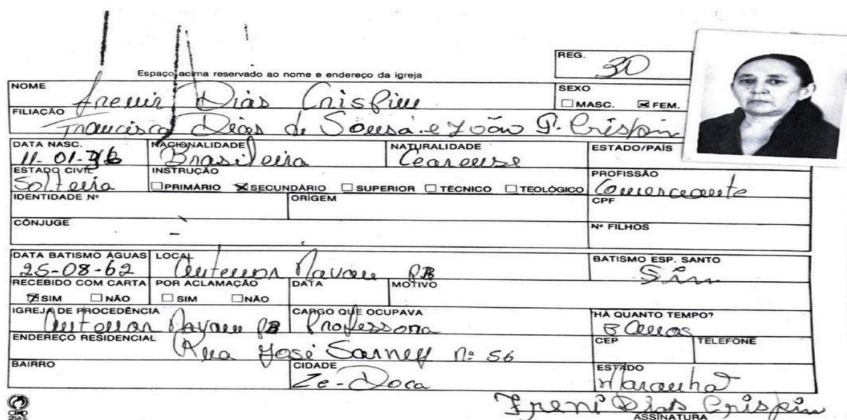 REG. 30
Espaço acima reservado ao nome e endereço da igreja
NOME Irenir Dias Crispim
SEXO MASC. FEM.
FILIAÇÃO Francisca Dias de Sousa e João P. Crispin
DATA NASC. 11-01- NACIONALIDADE Brasileira NATURALIDADE Cearense ESTADO/PAÍS
ESTADO CIVIL Solteira INSTRUÇÃO PRIMÁRIO SECUNDÁRIO SUPERIOR TÉCNICO TEOLÓGICO PROFISSÃO Comerciante
IDENTIDADE Nº ORIGEM CPF
CÔNJUGE - Nº FILHOS
DATA BATISMO ÁGUAS 25-08-62 LOCAL Antenor Navau PB BATISMO ESP. SANTO Sim
RECEBIDO COM CARTA SIM NÃO POR ACLAMAÇÃO SIM NÃO DATA MOTIVO
IGREJA DE PROCEDÊNCIA Antenor Navau PB CARGO QUE OCUPAVA Professora HÁ QUANTO TEMPO? Anos
ENDEREÇO RESIDENCIAL Rua José Sarney nº 56 CEP TELEFONE
BAIRRO CIDADE Ze-Doca ESTADO Maranhão
Ireni Dias Crispin
ASSINATURA